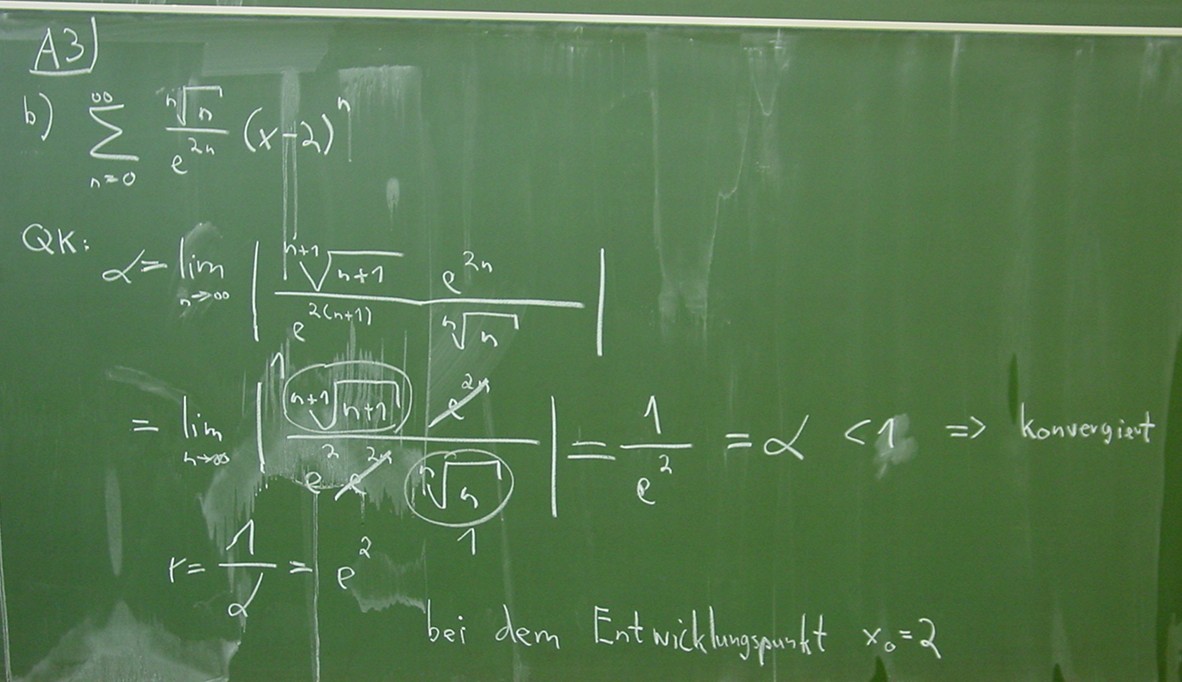 A3)
b) ∑_{n=0}^{∞} \frac{\sqrt[n]{n}}{e^{2n}} (x-2)^n
QK: α = lim_{n→∞} | \frac{\sqrt[n+1]{n+1} e^{2n}}{e^{2(n+1)} \sqrt[n]{n}} |
1
= lim_{n→∞} | \frac{\sqrt[n+1]{n+1} e^{2n}}{e^2 e^{2n} \sqrt[n]{n}} | = \frac{1}{e^2} = α < 1 => konvergiert
1
r = \frac{1}{α} = e^2
bei dem Entwicklungspunkt x_0 = 2